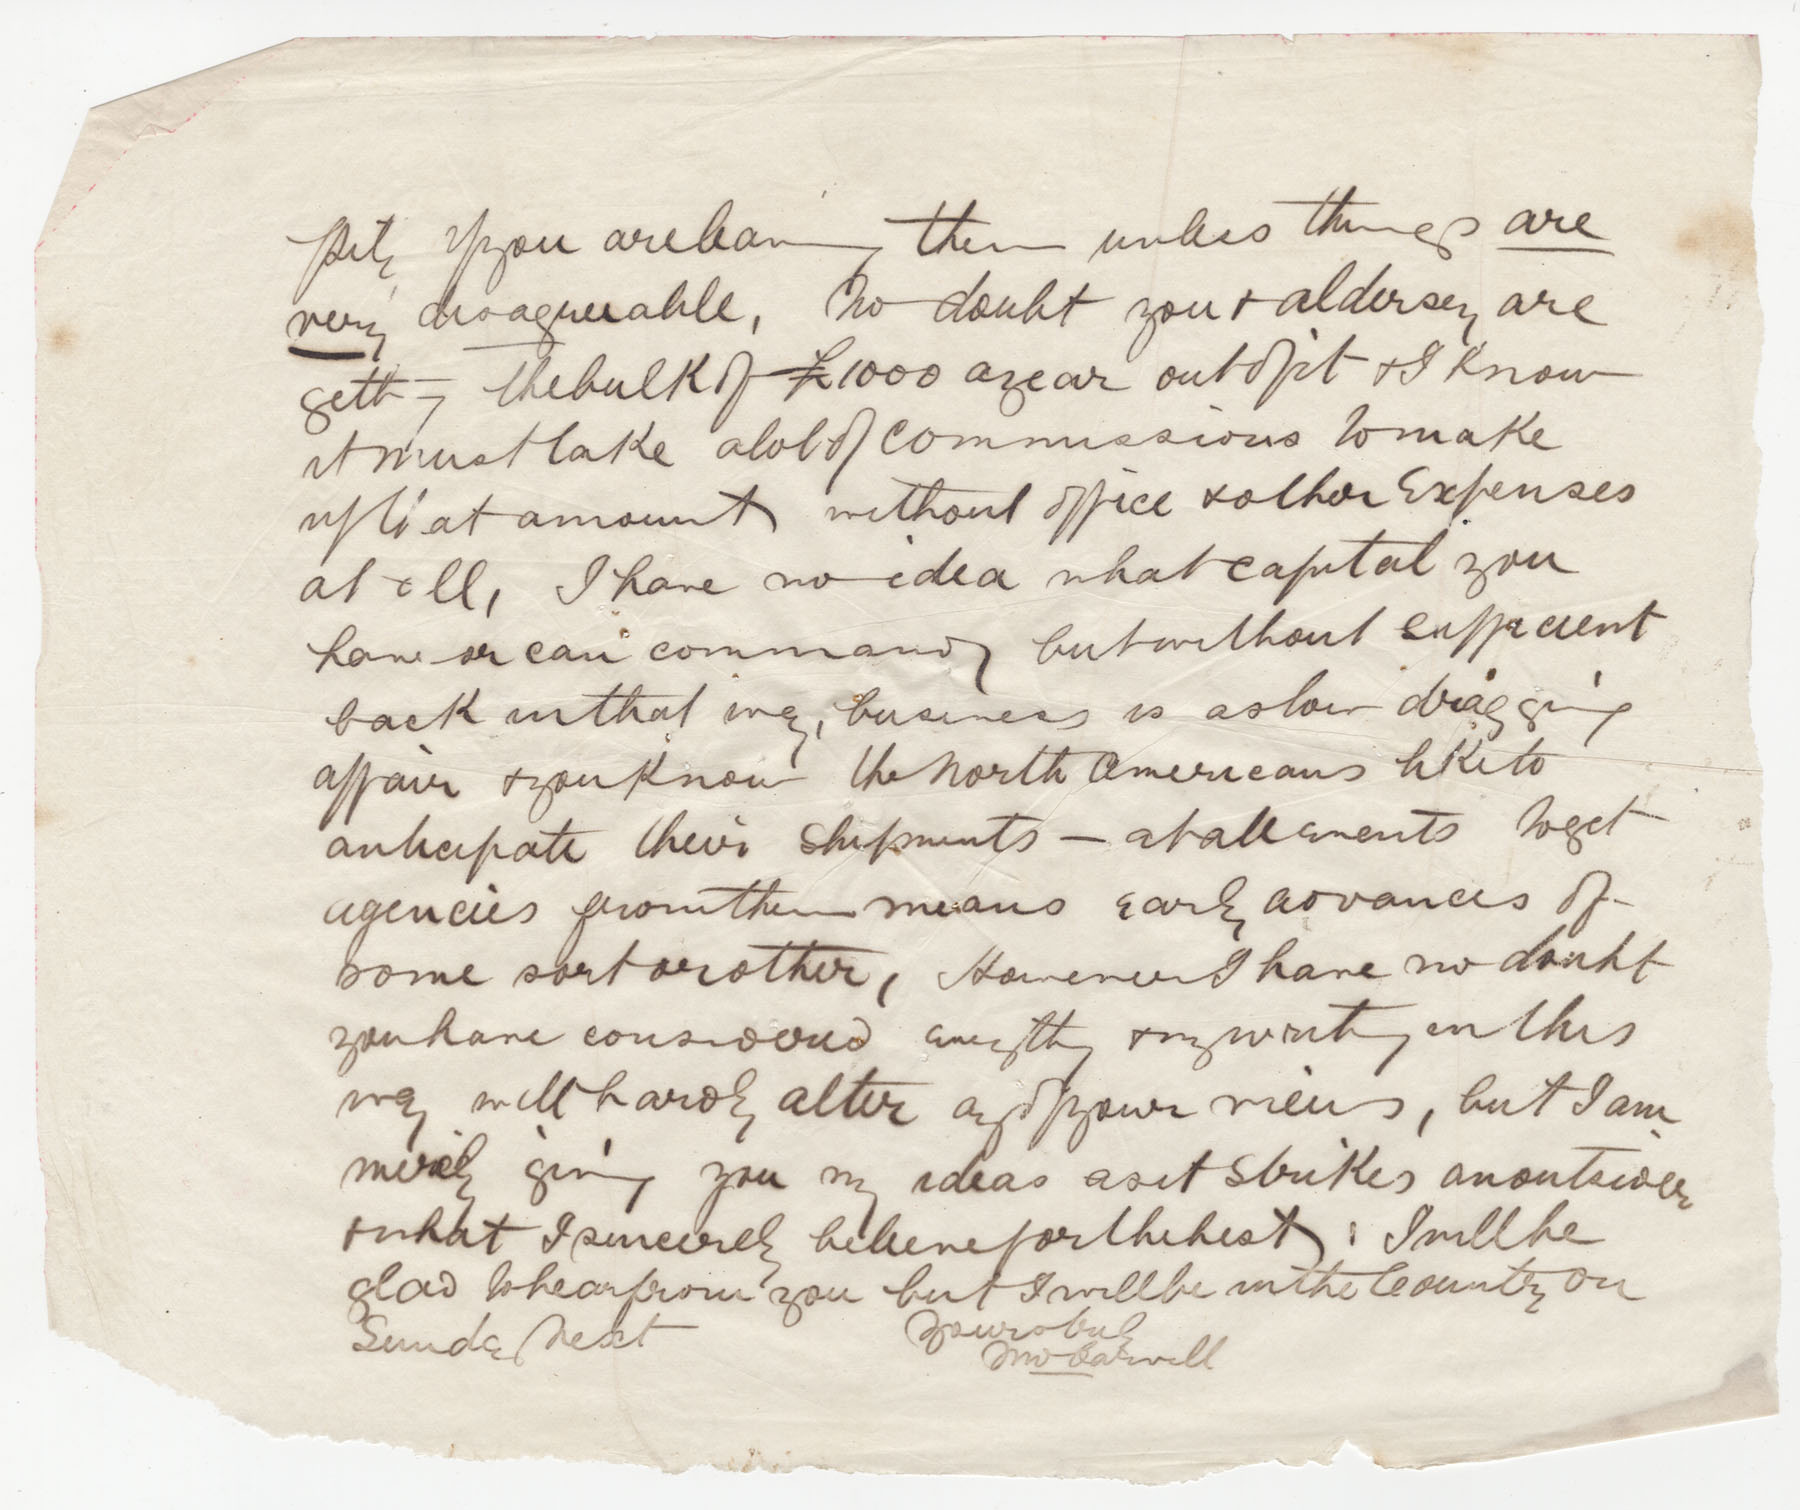 pity if you are leaving them unless things are
very disagreeable, No doubt you & aldersey are
getting the bulk of £1000 a year out of it & I know
it must take a lot of commissions to make
up that amount without office & other Expenses
at all, I have no idea what capital you
have or can command, but without sufficient
back in that way, business is a slow dragging
affair & you know the North Americans like to
anticipate their shipments — at all events to get
agencies from them means early advances of
some sort or other, However I have no doubt
you have considered everything & my writing in this
way will hardly alter any of your views, but I am
merely giving you my ideas as it strikes an outsider
& what I sincerely believe for the best, I will be
glad to hear from you but I will be in the Country on
Sunday Next Yours truly